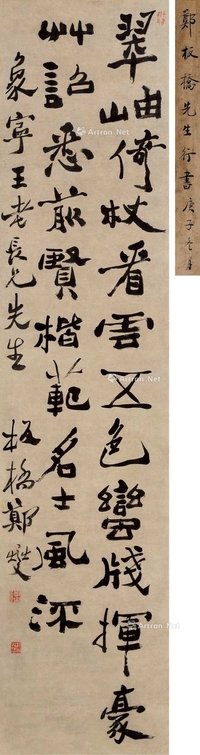 鄭板橋先生行書庚子
翠岫倚杖看雲五色蠻牋揮豪
艸詔悉前賢楷範名士風流
象寧王老長兄先生 板橋鄭燮
Artron.Net
Artron.Net
Artron.Net